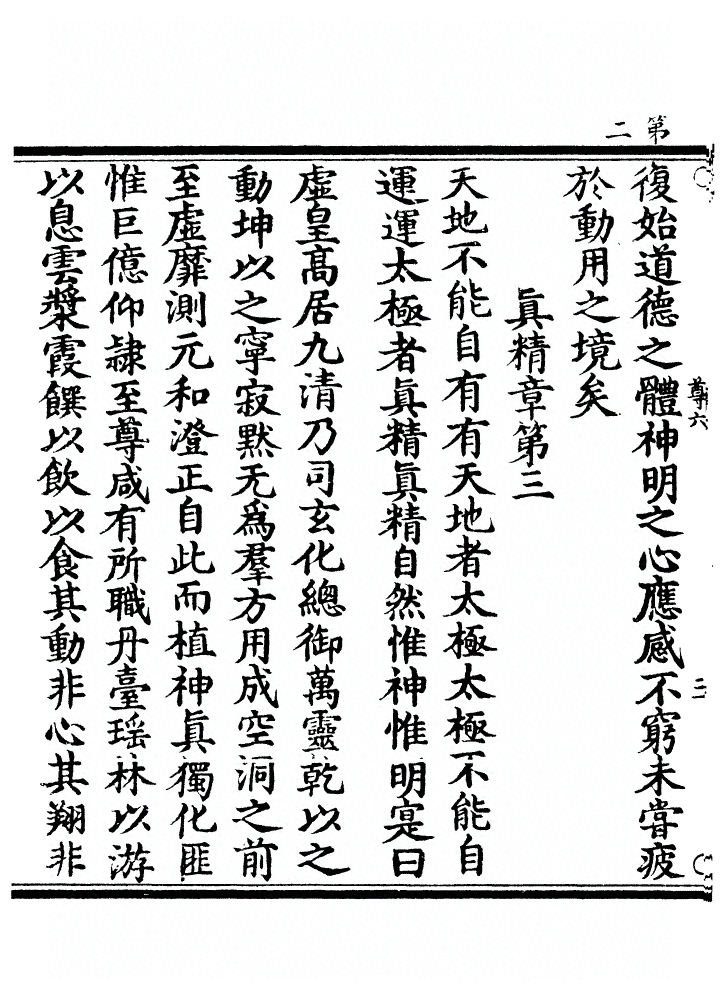 第二
復始道德之體神明之心應感不窮未嘗疲
於動用之境矣
眞精章第三
天地不能自有有天地者太極太極不能自
運運太極者眞精眞精自然惟神惟明寔曰
虛皇高居九清乃司玄化總御萬靈乾以之
動坤以之寧寂默无爲羣方用成空洞之前
至虛靡測元和澄正自此而植神眞獨化匪
惟巨億仰隷至尊咸有所職丹臺瑶林以游
以息雲漿霞饌以飲以食其動非心其翔非
尊六
二